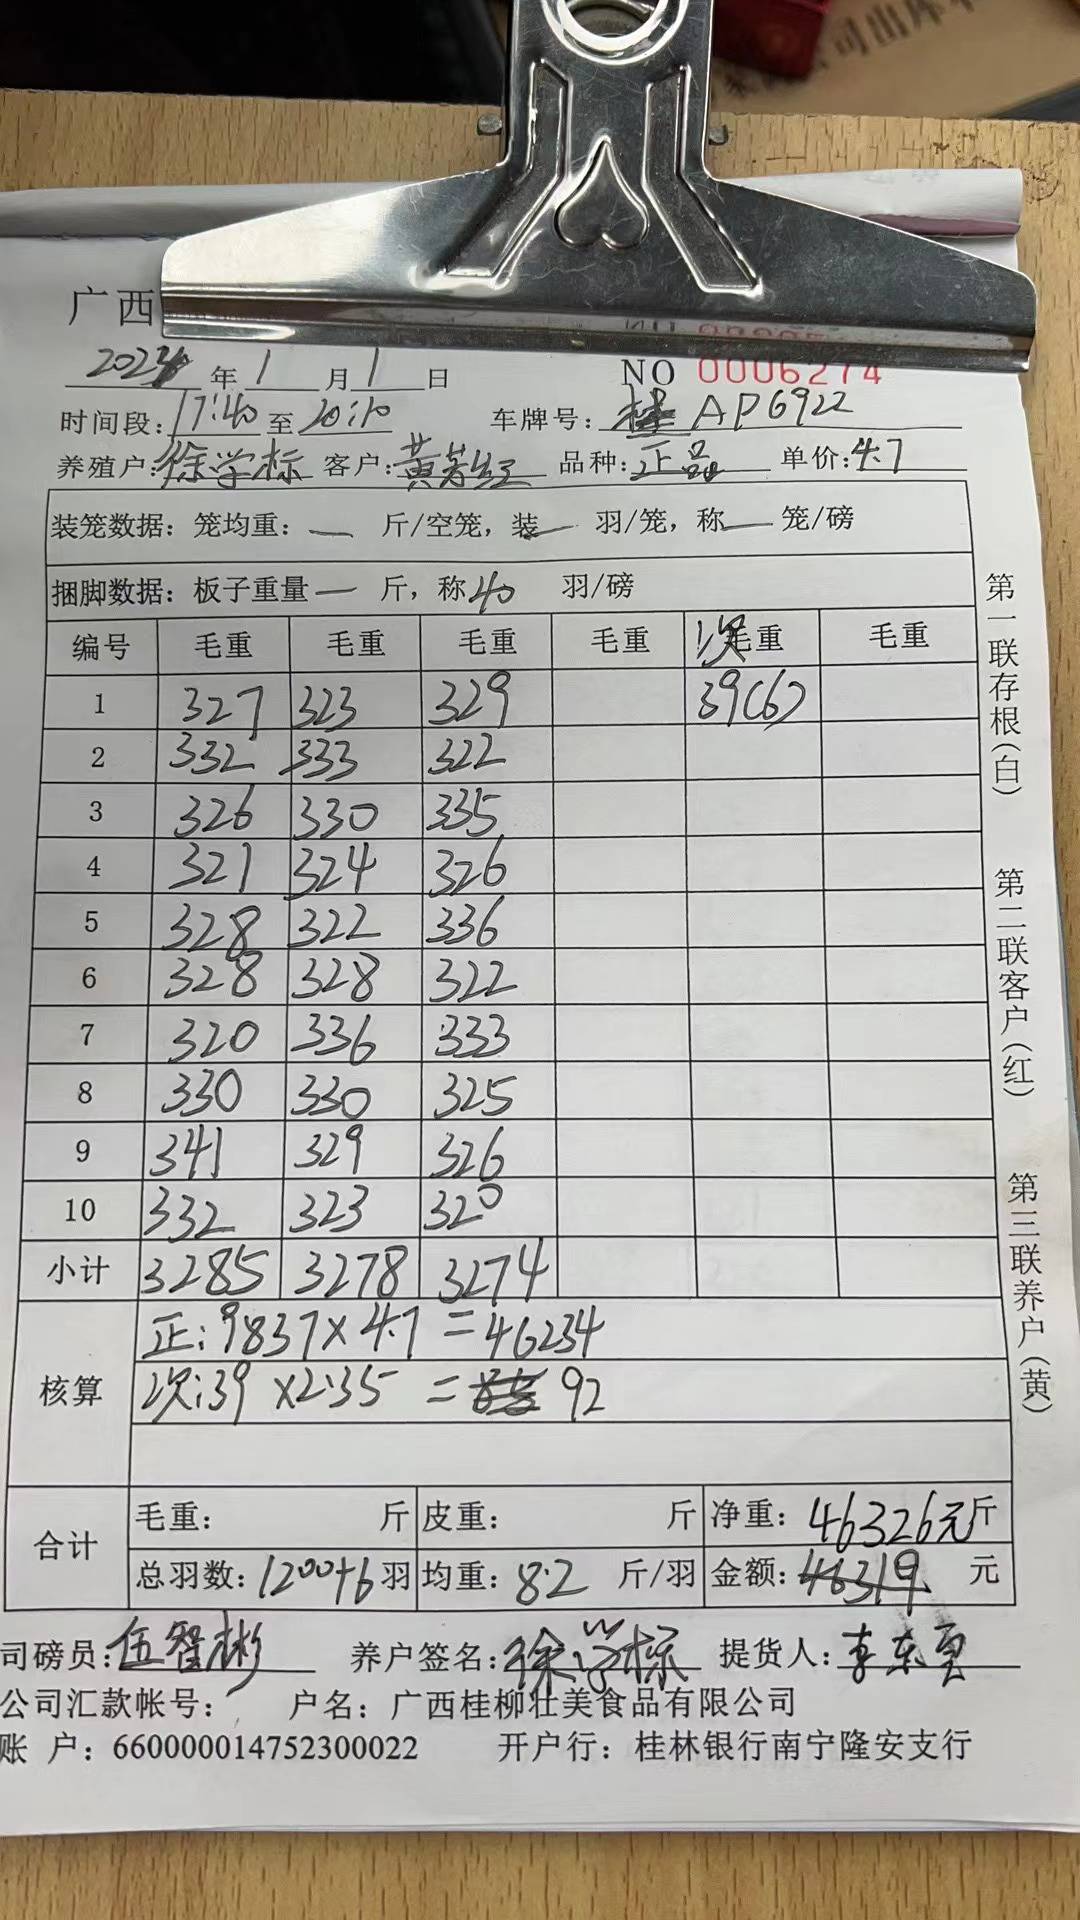 司出库
广西
NO 0006274
2023年1月1日
时间段:17:40至20:10 车牌号:桂AP6922
养殖户:徐学标 客户:黄芳红 品种:正品 单价:4.7
装笼数据: 笼均重: — 斤/空笼, 装— 羽/笼, 称— 笼/磅
捆脚数据: 板子重量 — 斤, 称40 羽/磅
编号 毛重 毛重 毛重 毛重 次毛重 毛重
1 327 323 329 39(6)
2 332 333 322
3 326 330 335
4 321 324 326
5 328 322 336
6 328 328 322
7 320 336 333
8 330 330 325
9 341 329 326
10 332 323 320
小计 3285 3278 3274
核算
正:9837×4.7=46234
次:39×2.35= 92
合计
毛重: 斤 皮重: 斤 净重: 46326元斤
总羽数:1200+6羽 均重:8.2 斤/羽 金额:46319 元
司磅员:伍智彬 养户签名:徐学标 提货人:李东
公司汇款帐号: 户名:广西桂柳壮美食品有限公司
账 户:660000014752300022 开户行:桂林银行南宁隆安支行
第一联存根(白)
第二联客户(红)
第三联养户(黄)